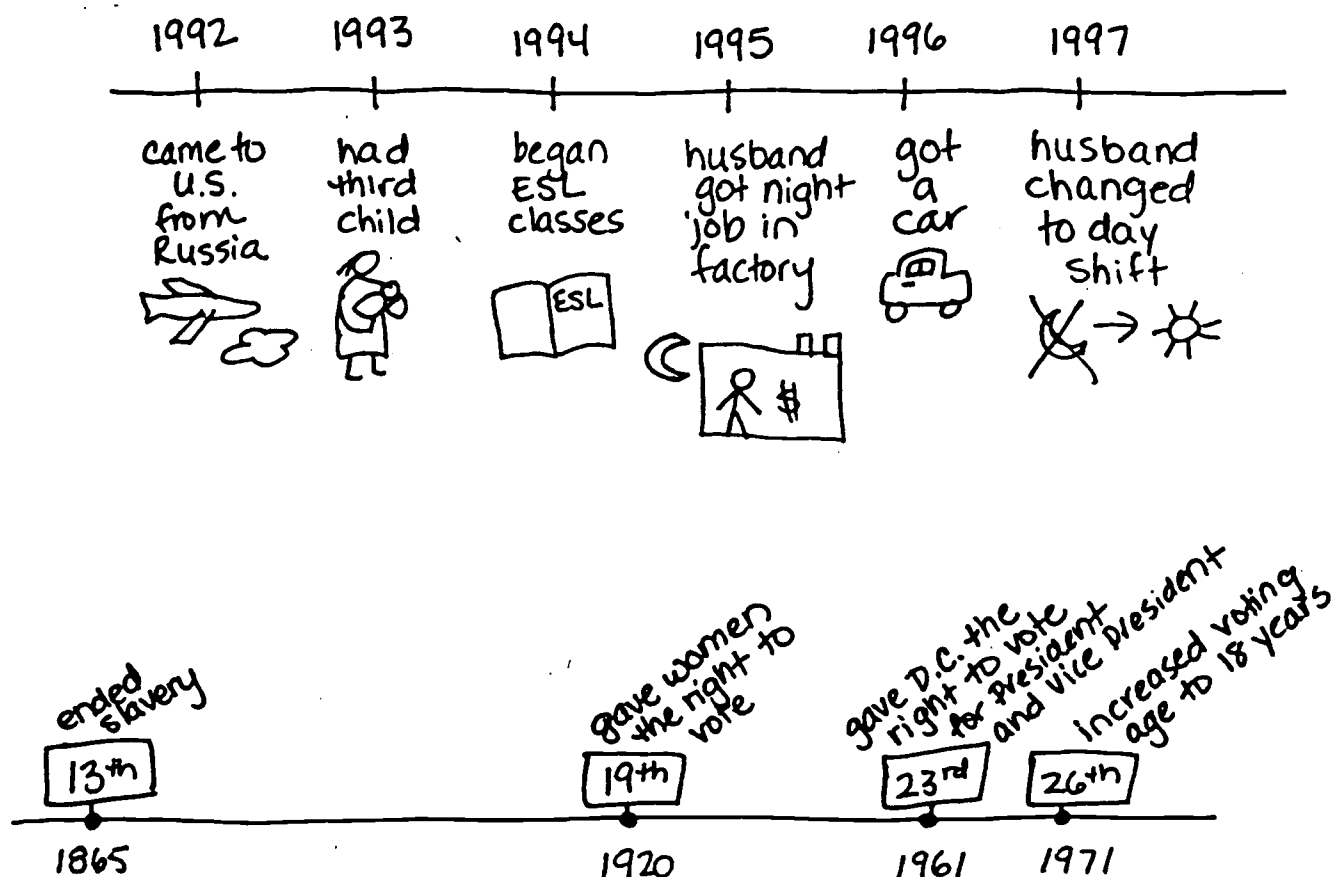 1992 1993 1994 1995 1996 1997
came to
U.S.
from
Russia
had
third
child
began
ESL
classes
ESL
husband
got night
job in
factory
$
got
a
car
husband
changed
to day
shift
ended
slavery
13th
1865
gave women
the right to
vote
19th
1920
gave D.C. the
right to vote
for President
and Vice President
23rd
1961
increased voting
age to 18 years
26th
1971